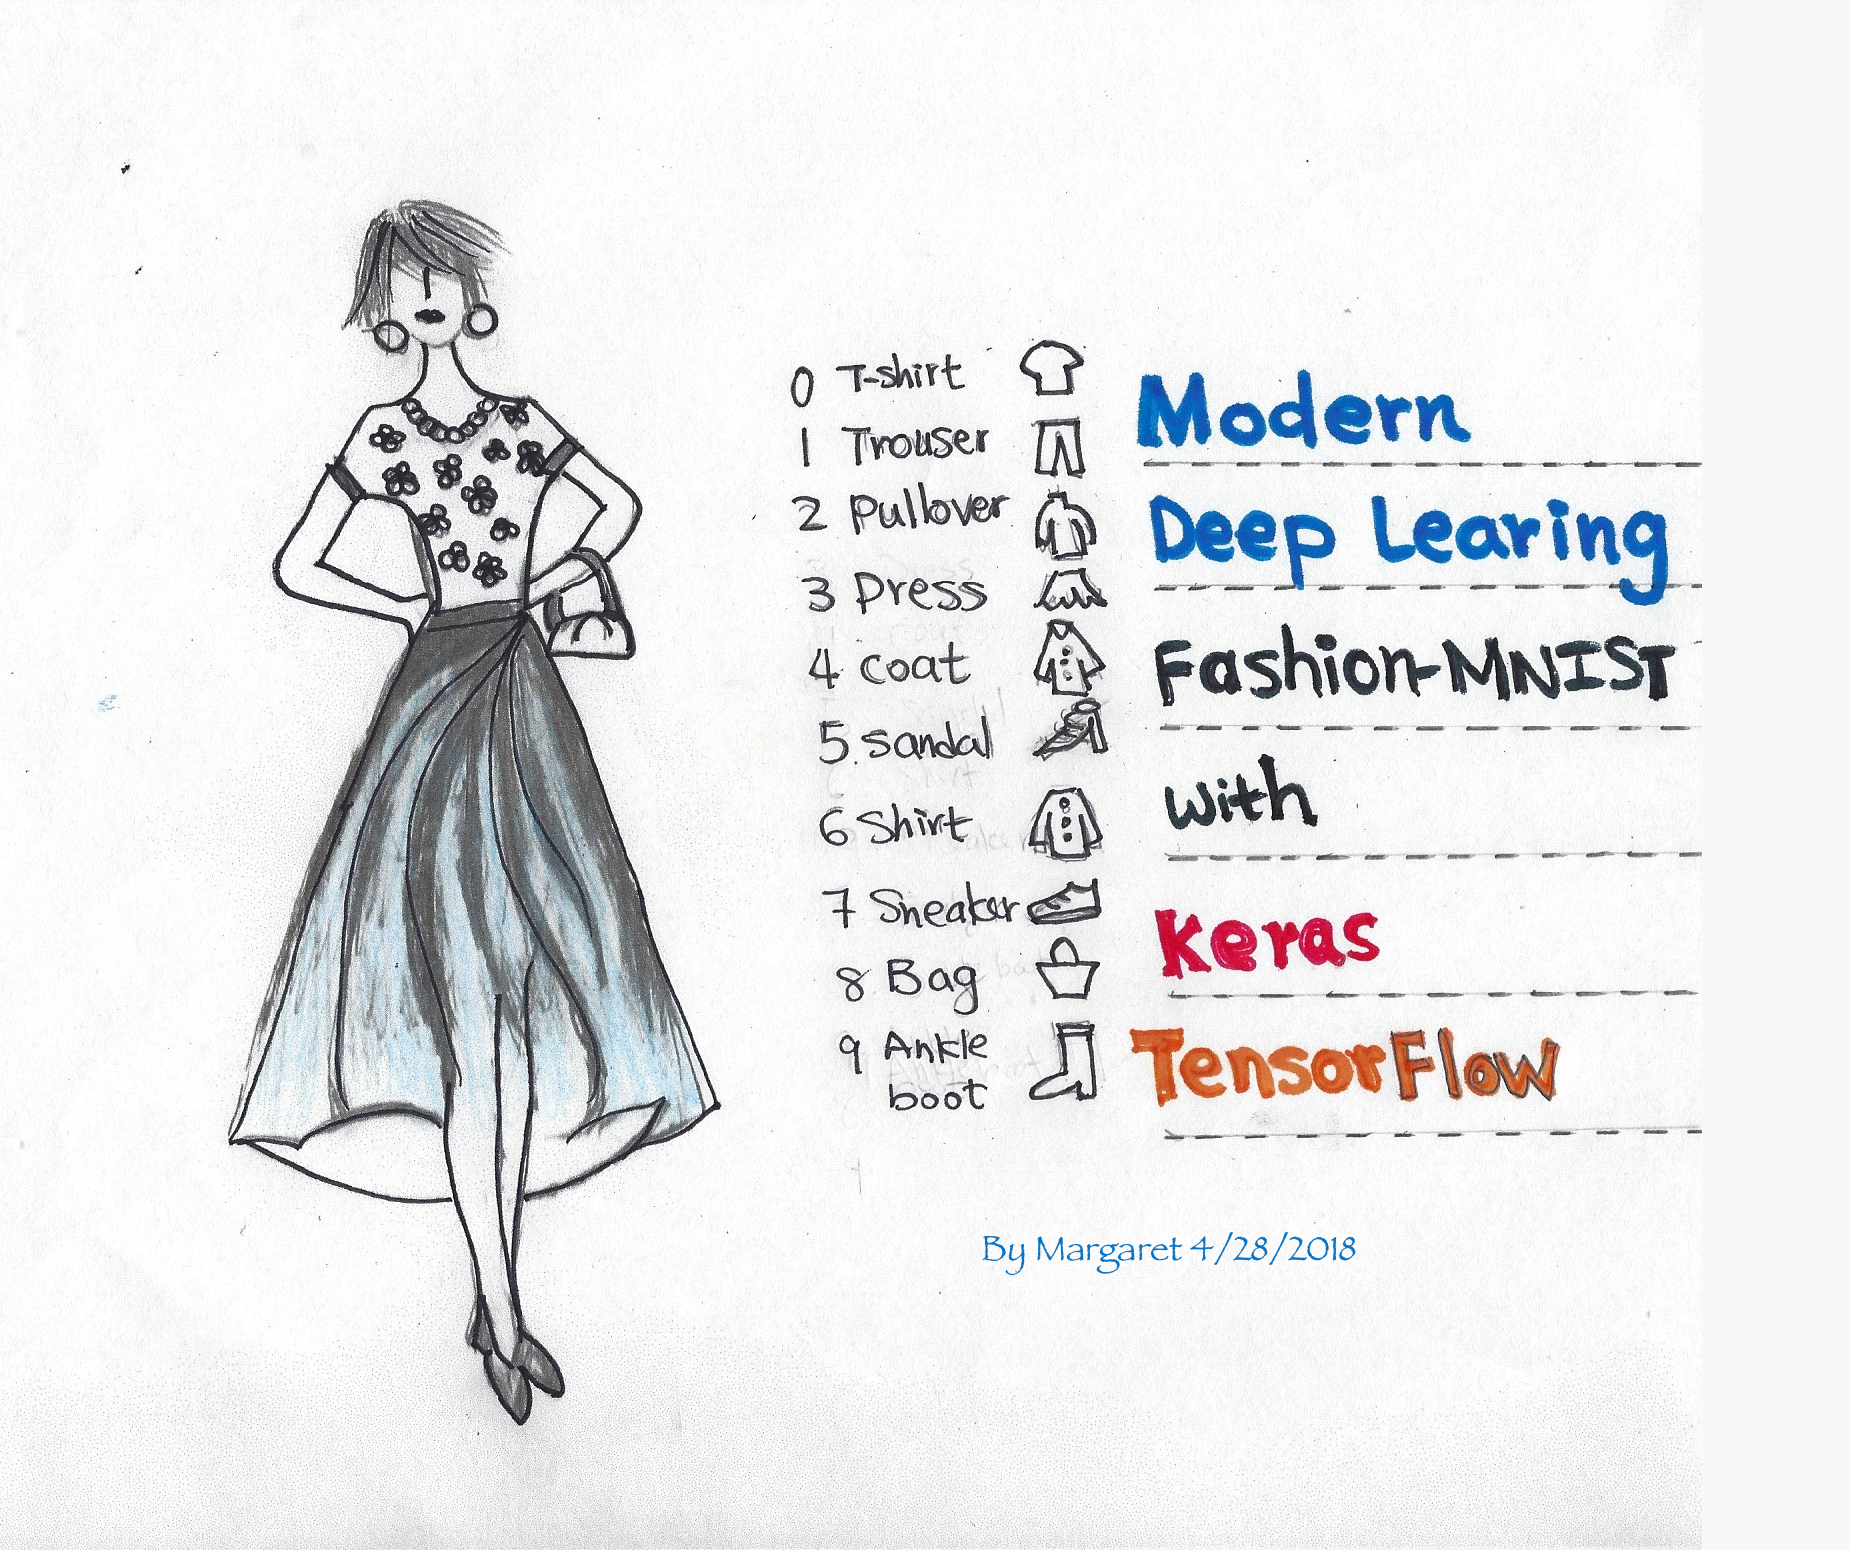 0 T-shirt
1 Trouser
2 Pullover
3 Dress
4 coat
5. Sandal
6 Shirt
7 Sneaker
8 Bag
9 Ankle
boot
Modern
Deep Learing
Fashion-MNIST
with
Keras
TensorFlow
By Margaret 4/28/2018